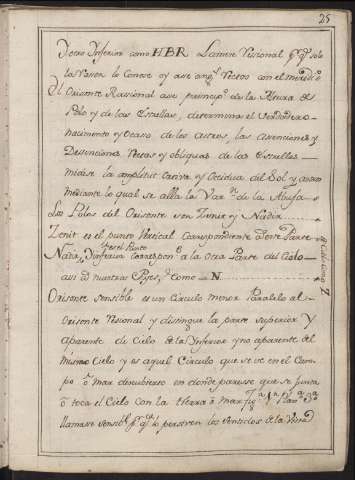 25
y otro Ynferior como HBR Llamase Racional pr qe solo
la Rason lo Conose y ase angs Rectos con el meridio
El Orisonte Rassional ase principo de la Altura del
Polo y de las Estrellas, determina el Verdadero
nacimiento y Ocaso de los astros, las asenciones y
Desenciones Rectas y obliquas de las Estrellas
midese la amplitit Ortiva y Ocidua del Sol y astros
mediante lo qual se alla la Varn de la Abuja
Los Polos del Orisonte son Zenit y Nadir
Zenit es el punto Vertical Correspondiente
Nadir es el Punto Ynferior Correspone á la otra Parte del Cielo
asi á nuestros Pies, qe como N.
Orisonte Sensible es un Circulo menor Paralelo al
Orisonte Racional y distingue la parte superior y
aparente de Cielo de la Ynferior y no aparente del
mismo Cielo y es aquel Circulo que se ve en el Cam-
po ó mar descubierto en donde paresse que se junta
ó toca el Cielo con la tierra ó mar figa 1a Plana 3a
llamasse Sensible pr qe lo persiven los Sentidos de la Vista